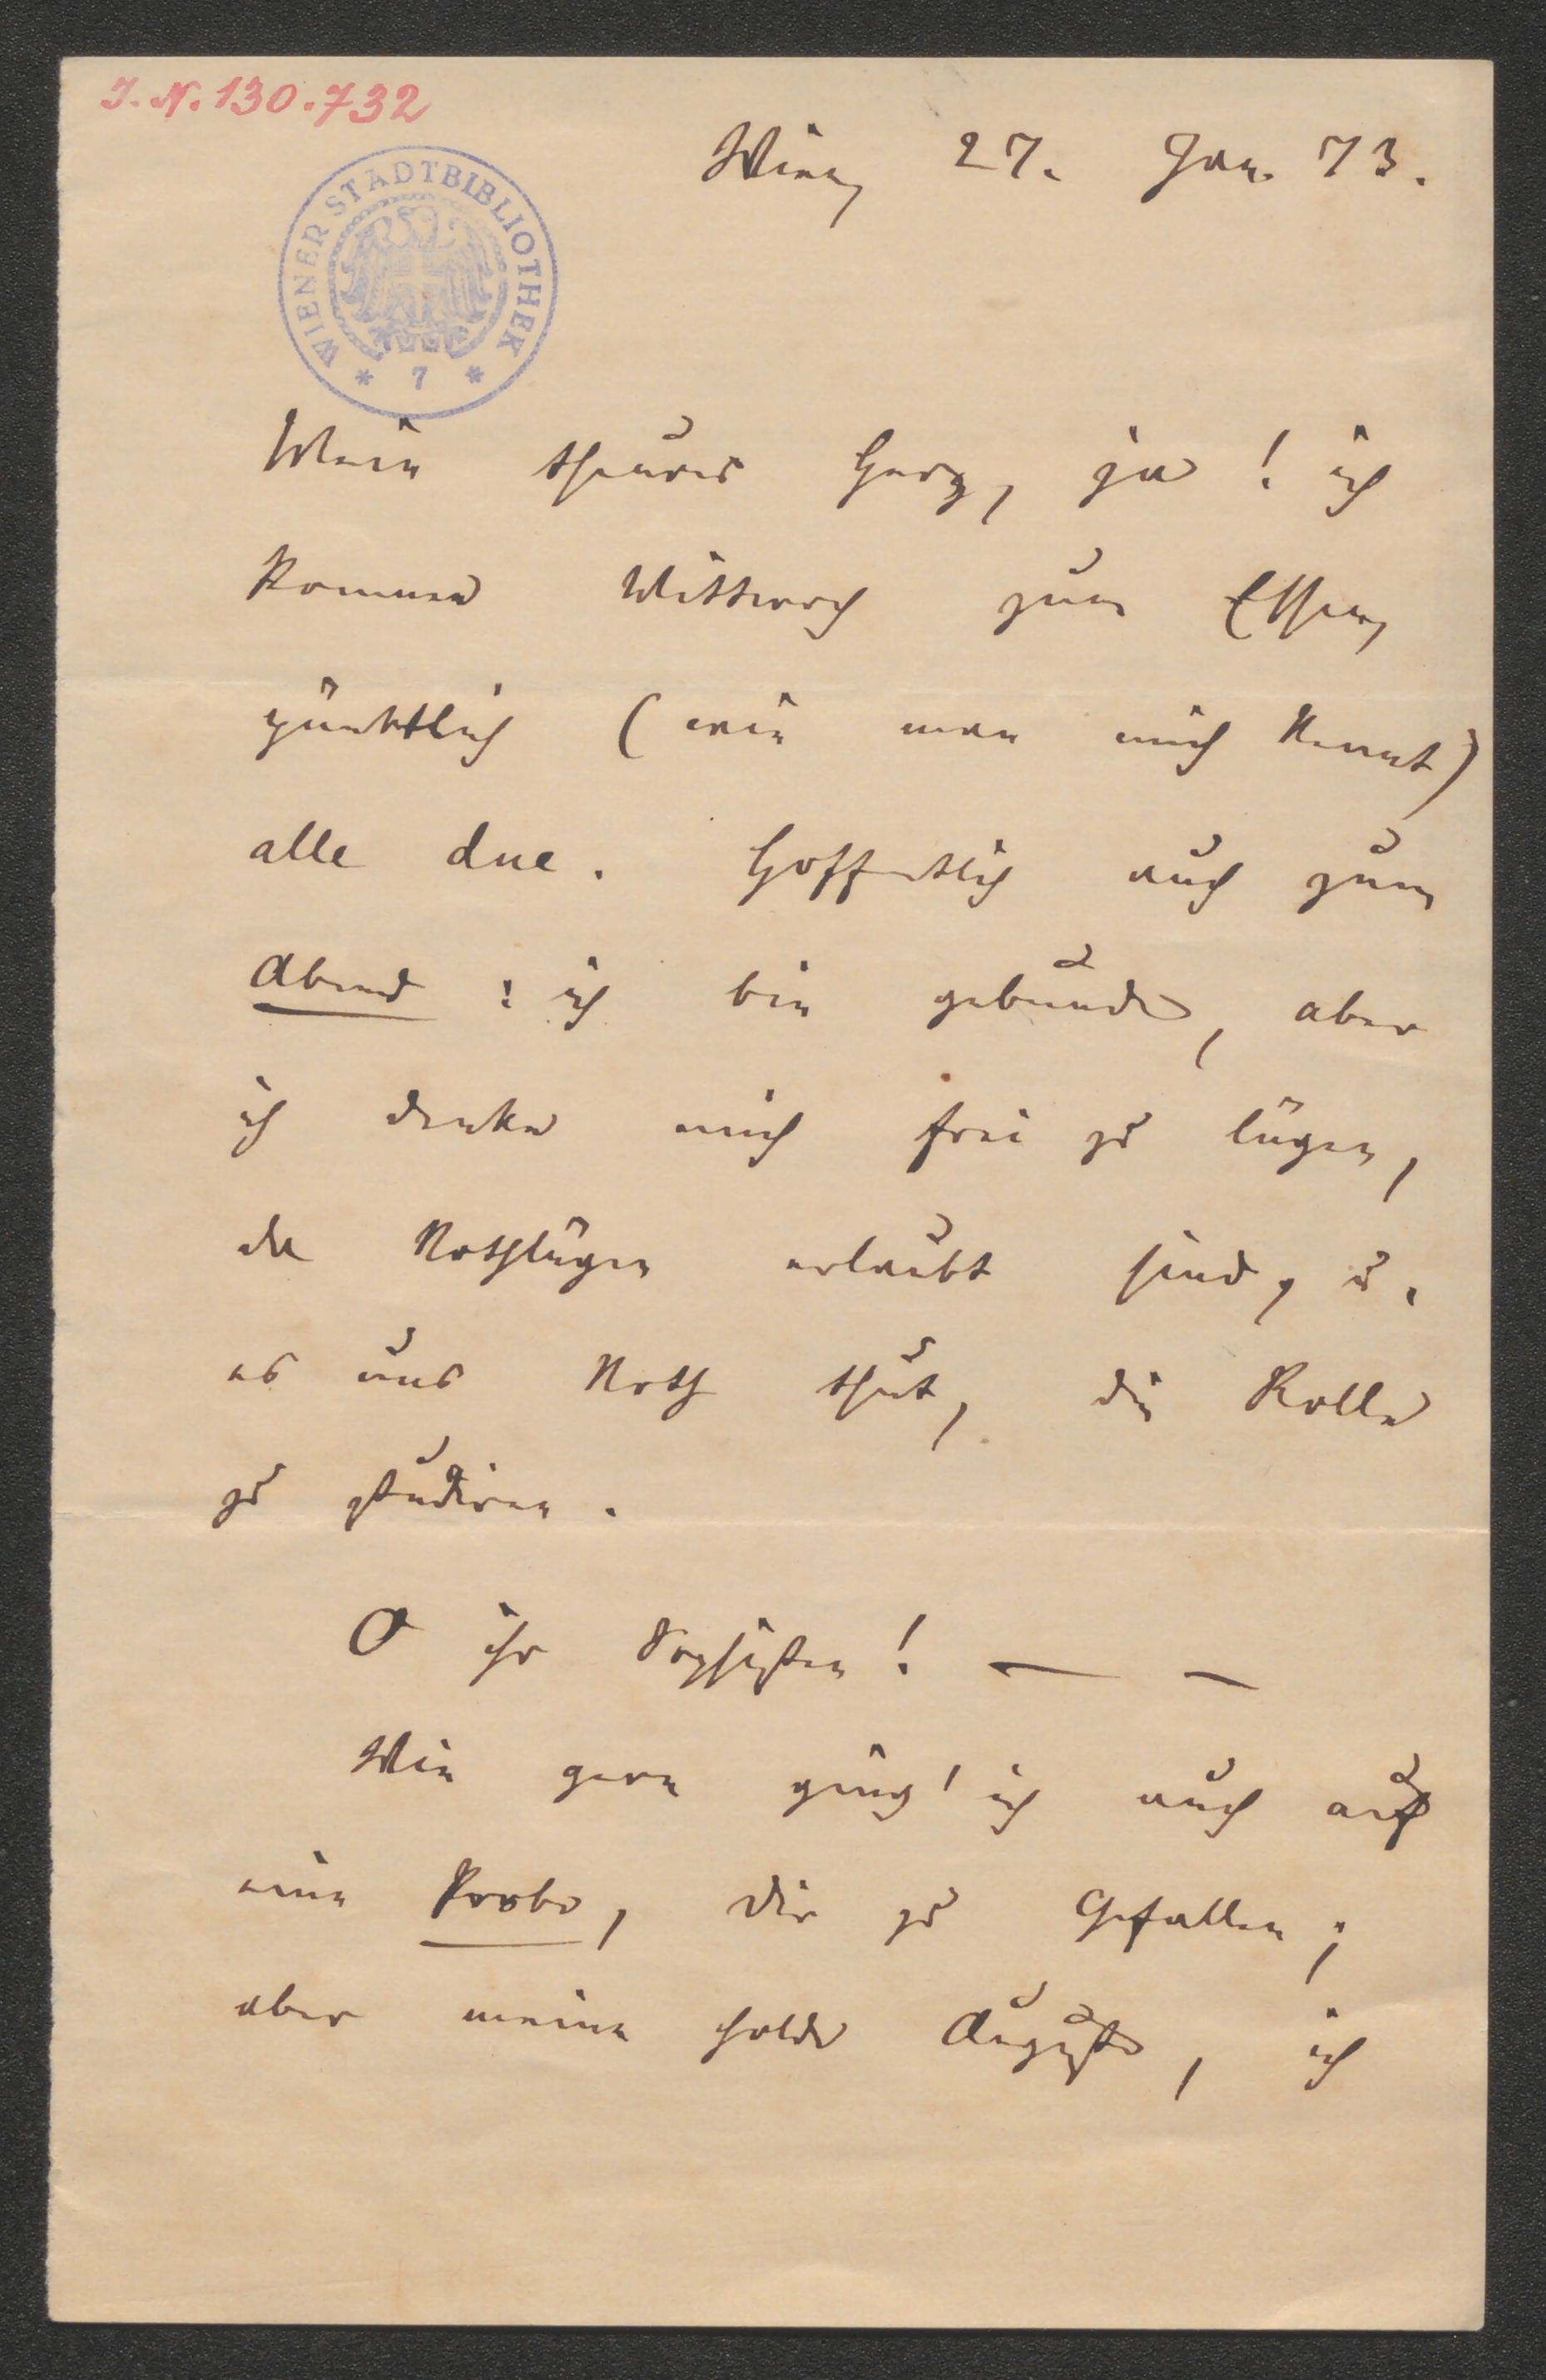 I. N. 130.732
WIENER STADTBIBLIOTHEK
* 7 *
Wien, 27. Jan. 73.
Mein theures Herz, ja! ich
komme Mittwoch zum Essen,
pünktlich (wie man mich kennt)
alle due. Hoffentlich auch zum
Abend: ich bin gebunden, aber
ich denke mich frei zu lügen,
da Nothlügen erlaubt sind, u.
es uns Noth thut, die Rolle
zu studiren.
O ihr Sophisten! — —
Wie gern ging' ich auch auf
eine Probe, dir zu Gefallen;
aber meine holde Auguste, ich